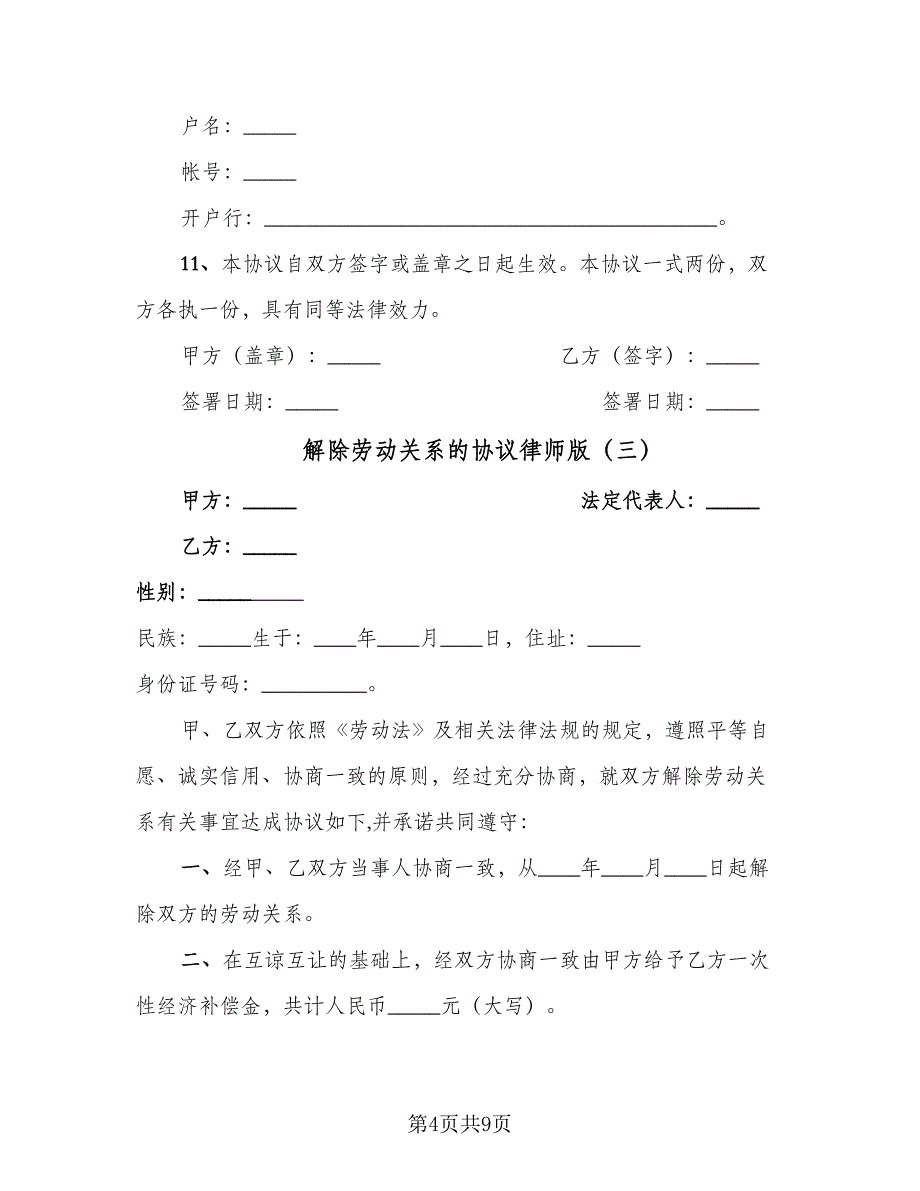 户名：_____
帐号：_____
开户行：___________________________________________。
11、本协议自双方签字或盖章之日起生效。本协议一式两份，双
方各执一份，具有同等法律效力。
甲方（盖章）：_____ 乙方（签字）：_____
签署日期：_____ 签署日期：_____
解除劳动关系的协议律师版（三）
甲方：_____ 法定代表人：_____
乙方：_____
性别：__________
民族：_____生于：____年____月____日，住址：_____
身份证号码：__________。
甲、乙双方依照《劳动法》及相关法律法规的规定，遵照平等自
愿、诚实信用、协商一致的原则，经过充分协商，就双方解除劳动关
系有关事宜达成协议如下,并承诺共同遵守：
一、经甲、乙双方当事人协商一致，从____年____月____日起解
除双方的劳动关系。
二、在互谅互让的基础上，经双方协商一致由甲方给予乙方一次
性经济补偿金，共计人民币_____元（大写）。
第4页共9页